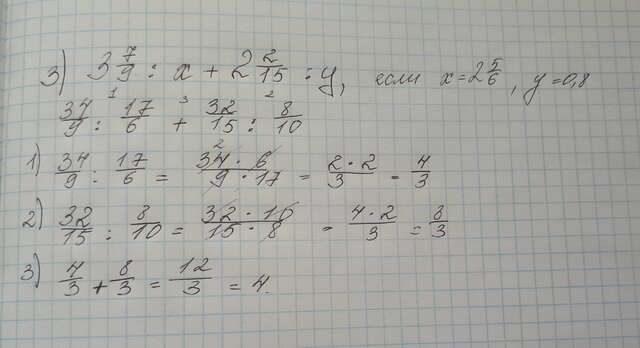 3) 3 7/9 : x + 2 2/15 : y, если x = 2 5/6, y = 0,8
34/9 :¹ 17/6 +³ 32/15 :² 8/10
1) 34/9 : 17/6 = (34 · 6)/(9 · 17) = (2 · 2)/3 = 4/3
2) 32/15 : 8/10 = (32 · 10)/(15 · 8) = (4 · 2)/3 = 8/3
3) 4/3 + 8/3 = 12/3 = 4.